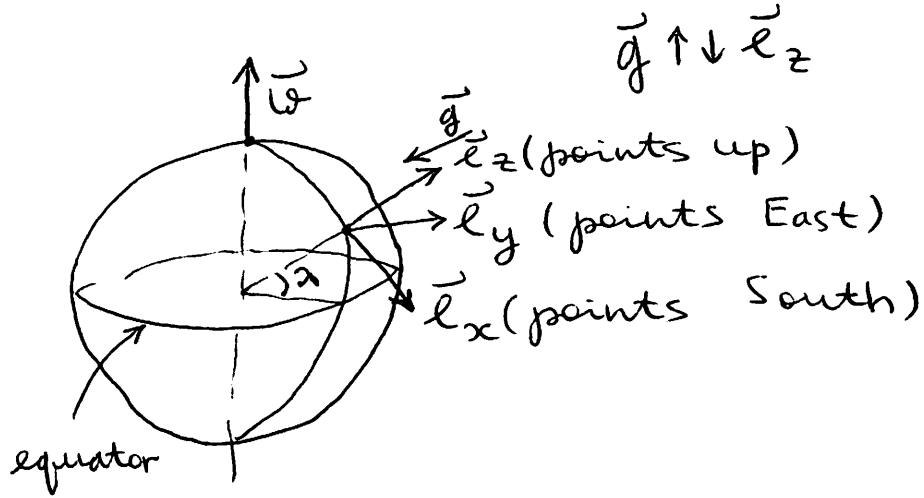 g⃗ ↑↓ e⃗_z
ω⃗
g⃗
e⃗_z (points up)
e⃗_y (points East)
λ
e⃗_x (points South)
equator